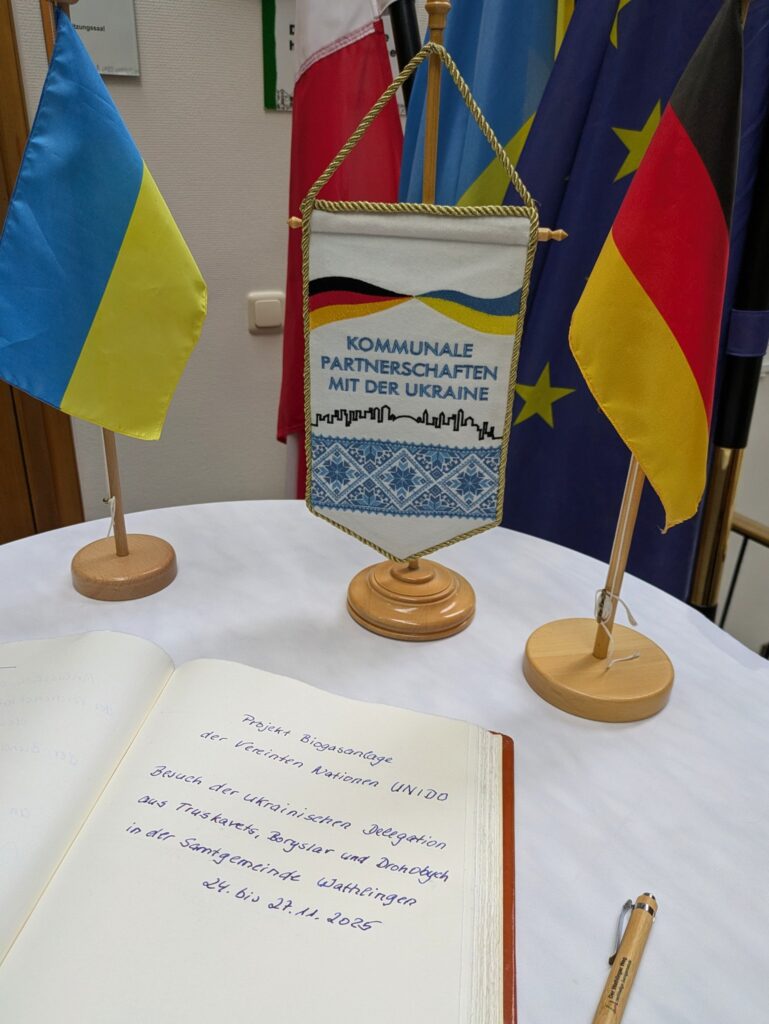 itzungssaal
KOMMUNALE
PARTNERSCHAFTEN
MIT DER UKRAINE
Projekt Biogasanlage
der Vereinten Nationen UNIDO
Besuch der ukrainischen Delegation
aus Truskavets, Boryslav und Drohobych
in der Samtgemeinde Wathlingen
24. bis 27.11.2025
Der Wathlinger Weg